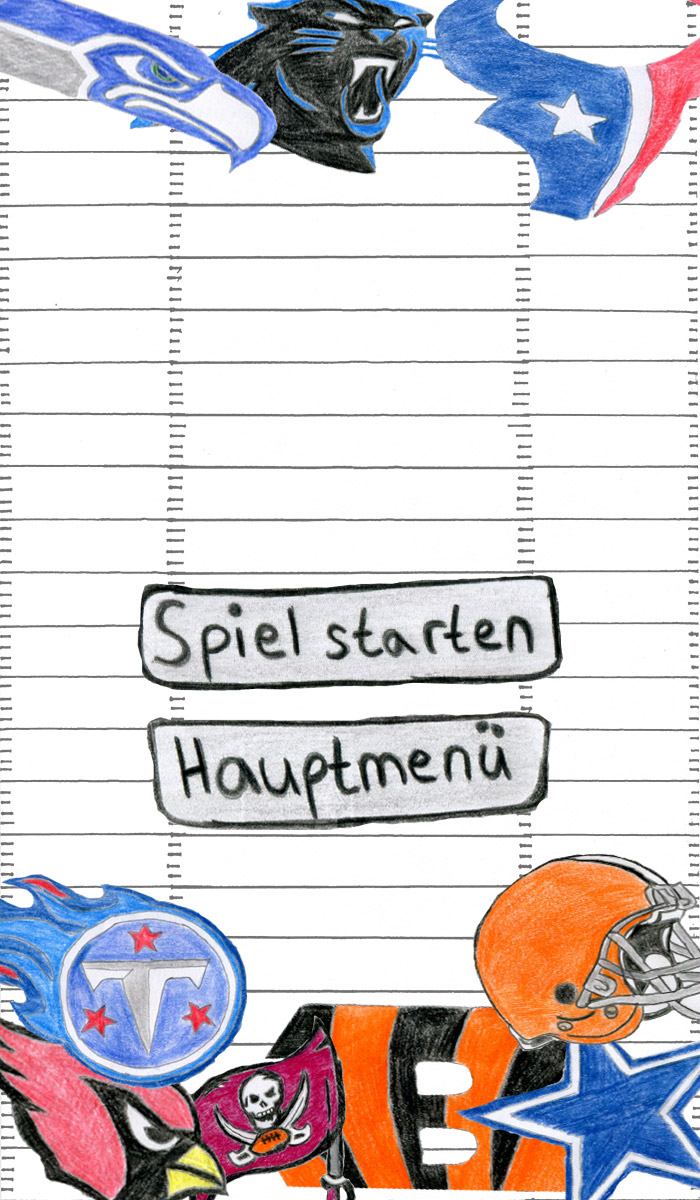 Spiel starten
Hauptmenü
T
B